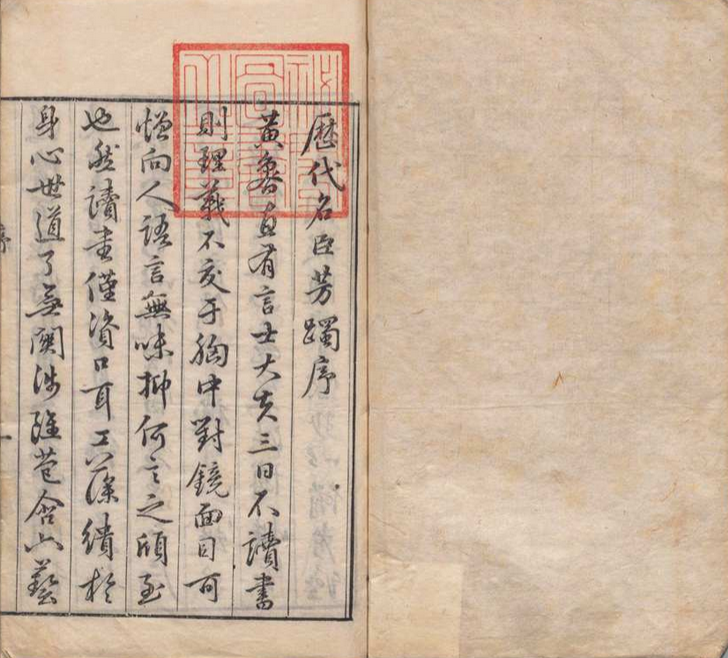 歷代名臣芳躅序
黃魯直有言士大夫三日不讀書
則理義不交于胸中對鏡面目可
憎向人語言無味抑何言之頎至
也然讀書僅資口耳工藻繢於
身心世道了無關涉雖苞含六藝
序
一